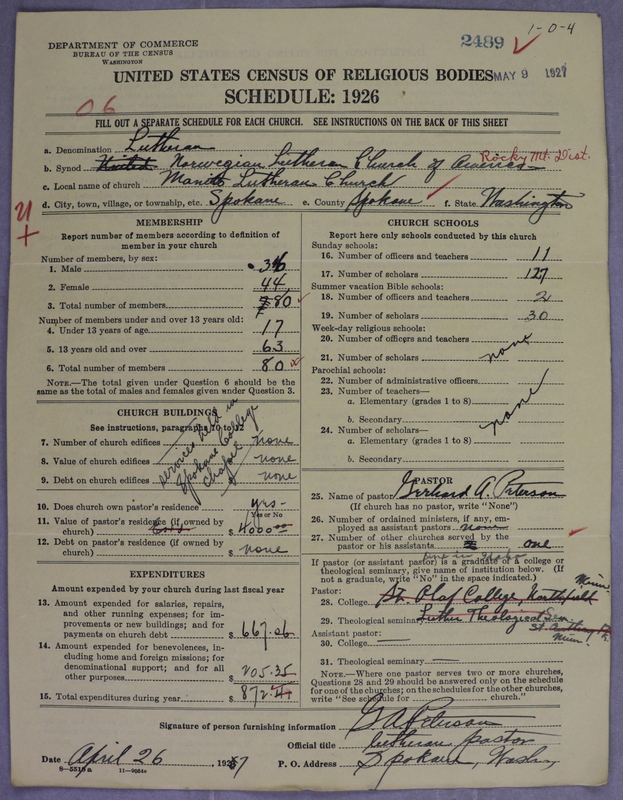 1-0-4
DEPARTMENT OF COMMERCE
BUREAU OF THE CENSUS
WASHINGTON
2489
UNITED STATES CENSUS OF RELIGIOUS BODIES
MAY 9 1927
SCHEDULE: 1926
06
FILL OUT A SEPARATE SCHEDULE FOR EACH CHURCH. SEE INSTRUCTIONS ON THE BACK OF THIS SHEET
a. Denomination Lutheran
b. Synod United Norwegian Lutheran Church of America Rocky Mt. Dist.
c. Local name of church Manito Lutheran Church
d. City, town, village, or township, etc. Spokane e. County Spokane f. State Washington
MEMBERSHIP
Report number of members according to definition of
member in your church
Number of members, by sex:
1. Male 36
2. Female 44
3. Total number of members 80
Number of members under and over 13 years old:
4. Under 13 years of age 17
5. 13 years old and over 63
6. Total number of members 80
NOTE.—The total given under Question 6 should be the
same as the total of males and females given under Question 3.
CHURCH BUILDINGS
See instructions, paragraphs 10 to 12
services held in
Spokane College
Chapel
7. Number of church edifices none
8. Value of church edifices none
9. Debt on church edifices $ none
10. Does church own pastor's residence yes-
Yes or No
11. Value of pastor's residence (if owned by
church) $ 4000.00
12. Debt on pastor's residence (if owned by
church) $ none
EXPENDITURES
Amount expended by your church during last fiscal year
13. Amount expended for salaries, repairs,
and other running expenses; for im-
provements or new buildings; and for
payments on church debt $ 667.06
14. Amount expended for benevolences, in-
cluding home and foreign missions; for
denominational support; and for all
other purposes 205.35
15. Total expenditures during year $ 872.41
CHURCH SCHOOLS
Report here only schools conducted by this church
Sunday schools:
16. Number of officers and teachers 11
17. Number of scholars 127
Summer vacation Bible schools:
18. Number of officers and teachers 2
19. Number of scholars 30
Week-day religious schools:
20. Number of officers and teachers
21. Number of scholars none
Parochial schools:
22. Number of administrative officers
23. Number of teachers—
a. Elementary (grades 1 to 8) none
b. Secondary
24. Number of scholars—
a. Elementary (grades 1 to 8)
b. Secondary
PASTOR
25. Name of pastor Gerhard A. Peterson
(If church has no pastor, write "None")
26. Number of ordained ministers, if any, em-
ployed as assistant pastors None
27. Number of other churches served by the
pastor or his assistants one
one in Idaho
If pastor (or assistant pastor) is a graduate of a college or
theological seminary, give name of institution below. (If
not a graduate, write "No" in the space indicated.)
Pastor:
28. College St. Olaf College Northfield Minn.
29. Theological seminary Luther Theological Sem.
Assistant pastor: St. Anthony Pk. Minn.
30. College
31. Theological seminary
NOTE.—Where one pastor serves two or more churches,
Questions 28 and 29 should be answered only on the schedule
for one of the churches; on the schedules for the other churches,
write "See schedule for church."
Signature of person furnishing information G A Peterson
Official title Lutheran pastor
Date April 26, 1927 P. O. Address Spokane, Wash.
8-5518a 11-9034